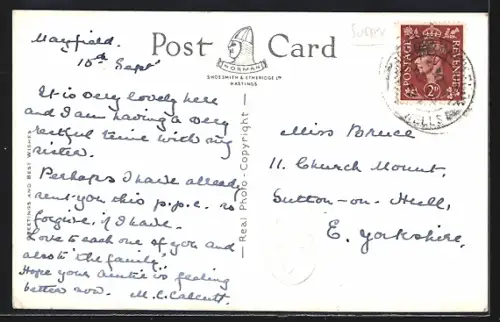 Post Card
NORMAN
SHOESMITH & ETHERIDGE LTD
HASTINGS
Mayfield.
10th Sept
It is very lovely here
and I am having a very
restful time with my
sister.
Perhaps I have already
sent you this p.p.c. so
forgive if I have.
Love to each one of you and
also to "the family",
Hope your auntie is feeling
better now. M.C. Calcutt.
GREETINGS AND BEST WISHES
Real Photo-Copyright
POSTAGE
REVENUE
2D
WELLS
Miss Bruce
11. Church Mount,
Sutton-on-Hull,
E. Yorkshire.